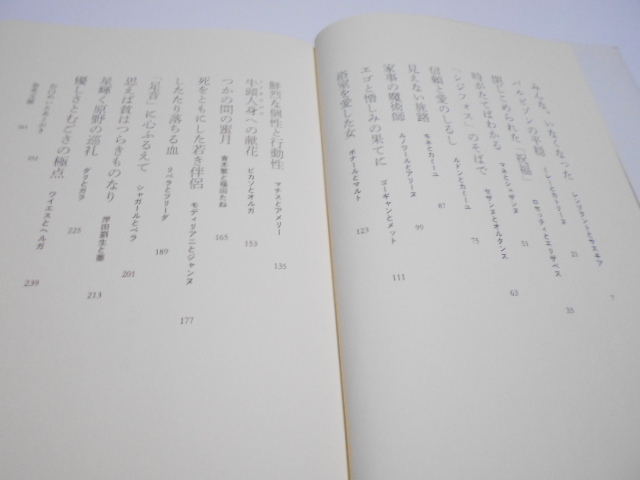 みんな、いなくなった
レンブラントとサスキア
7
バルビゾンの平穏
ミレーとカトリーヌ
21
閉じこめられた「祝福」
ロセッティとエリザベス
33
時がたてばわかる
マネとシュザンヌ
51
「シジフォス」のそばで
セザンヌとオルタンス
63
見えない旅路
ルドンとカミーユ
75
信頼と愛のしるし
モネとカミーユ
87
家事の魔術師
ルノワールとアリーヌ
99
エゴと憎しみの果てに
ゴーギャンとメット
111
浴室を愛した女
ボナールとマルト
123
鮮烈な個性と行動性
マチスとアメリー
135
牛頭人身への献花
ピカソとオルガ
153
つかの間の蜜月
青木繁と福田たね
165
死をともにした若き伴侶
モディリアニとジャンヌ
177
したたり落ちる血
リベラとフリーダ
189
「足音」に心ふるえて
シャガールとベラ
201
思えば貧はつらきものなり
岸田劉生と蓁
213
星輝く原野の巡礼
ダリとガラ
225
優しさとむごさの極点
ワイエスとヘルガ
239
参考文献